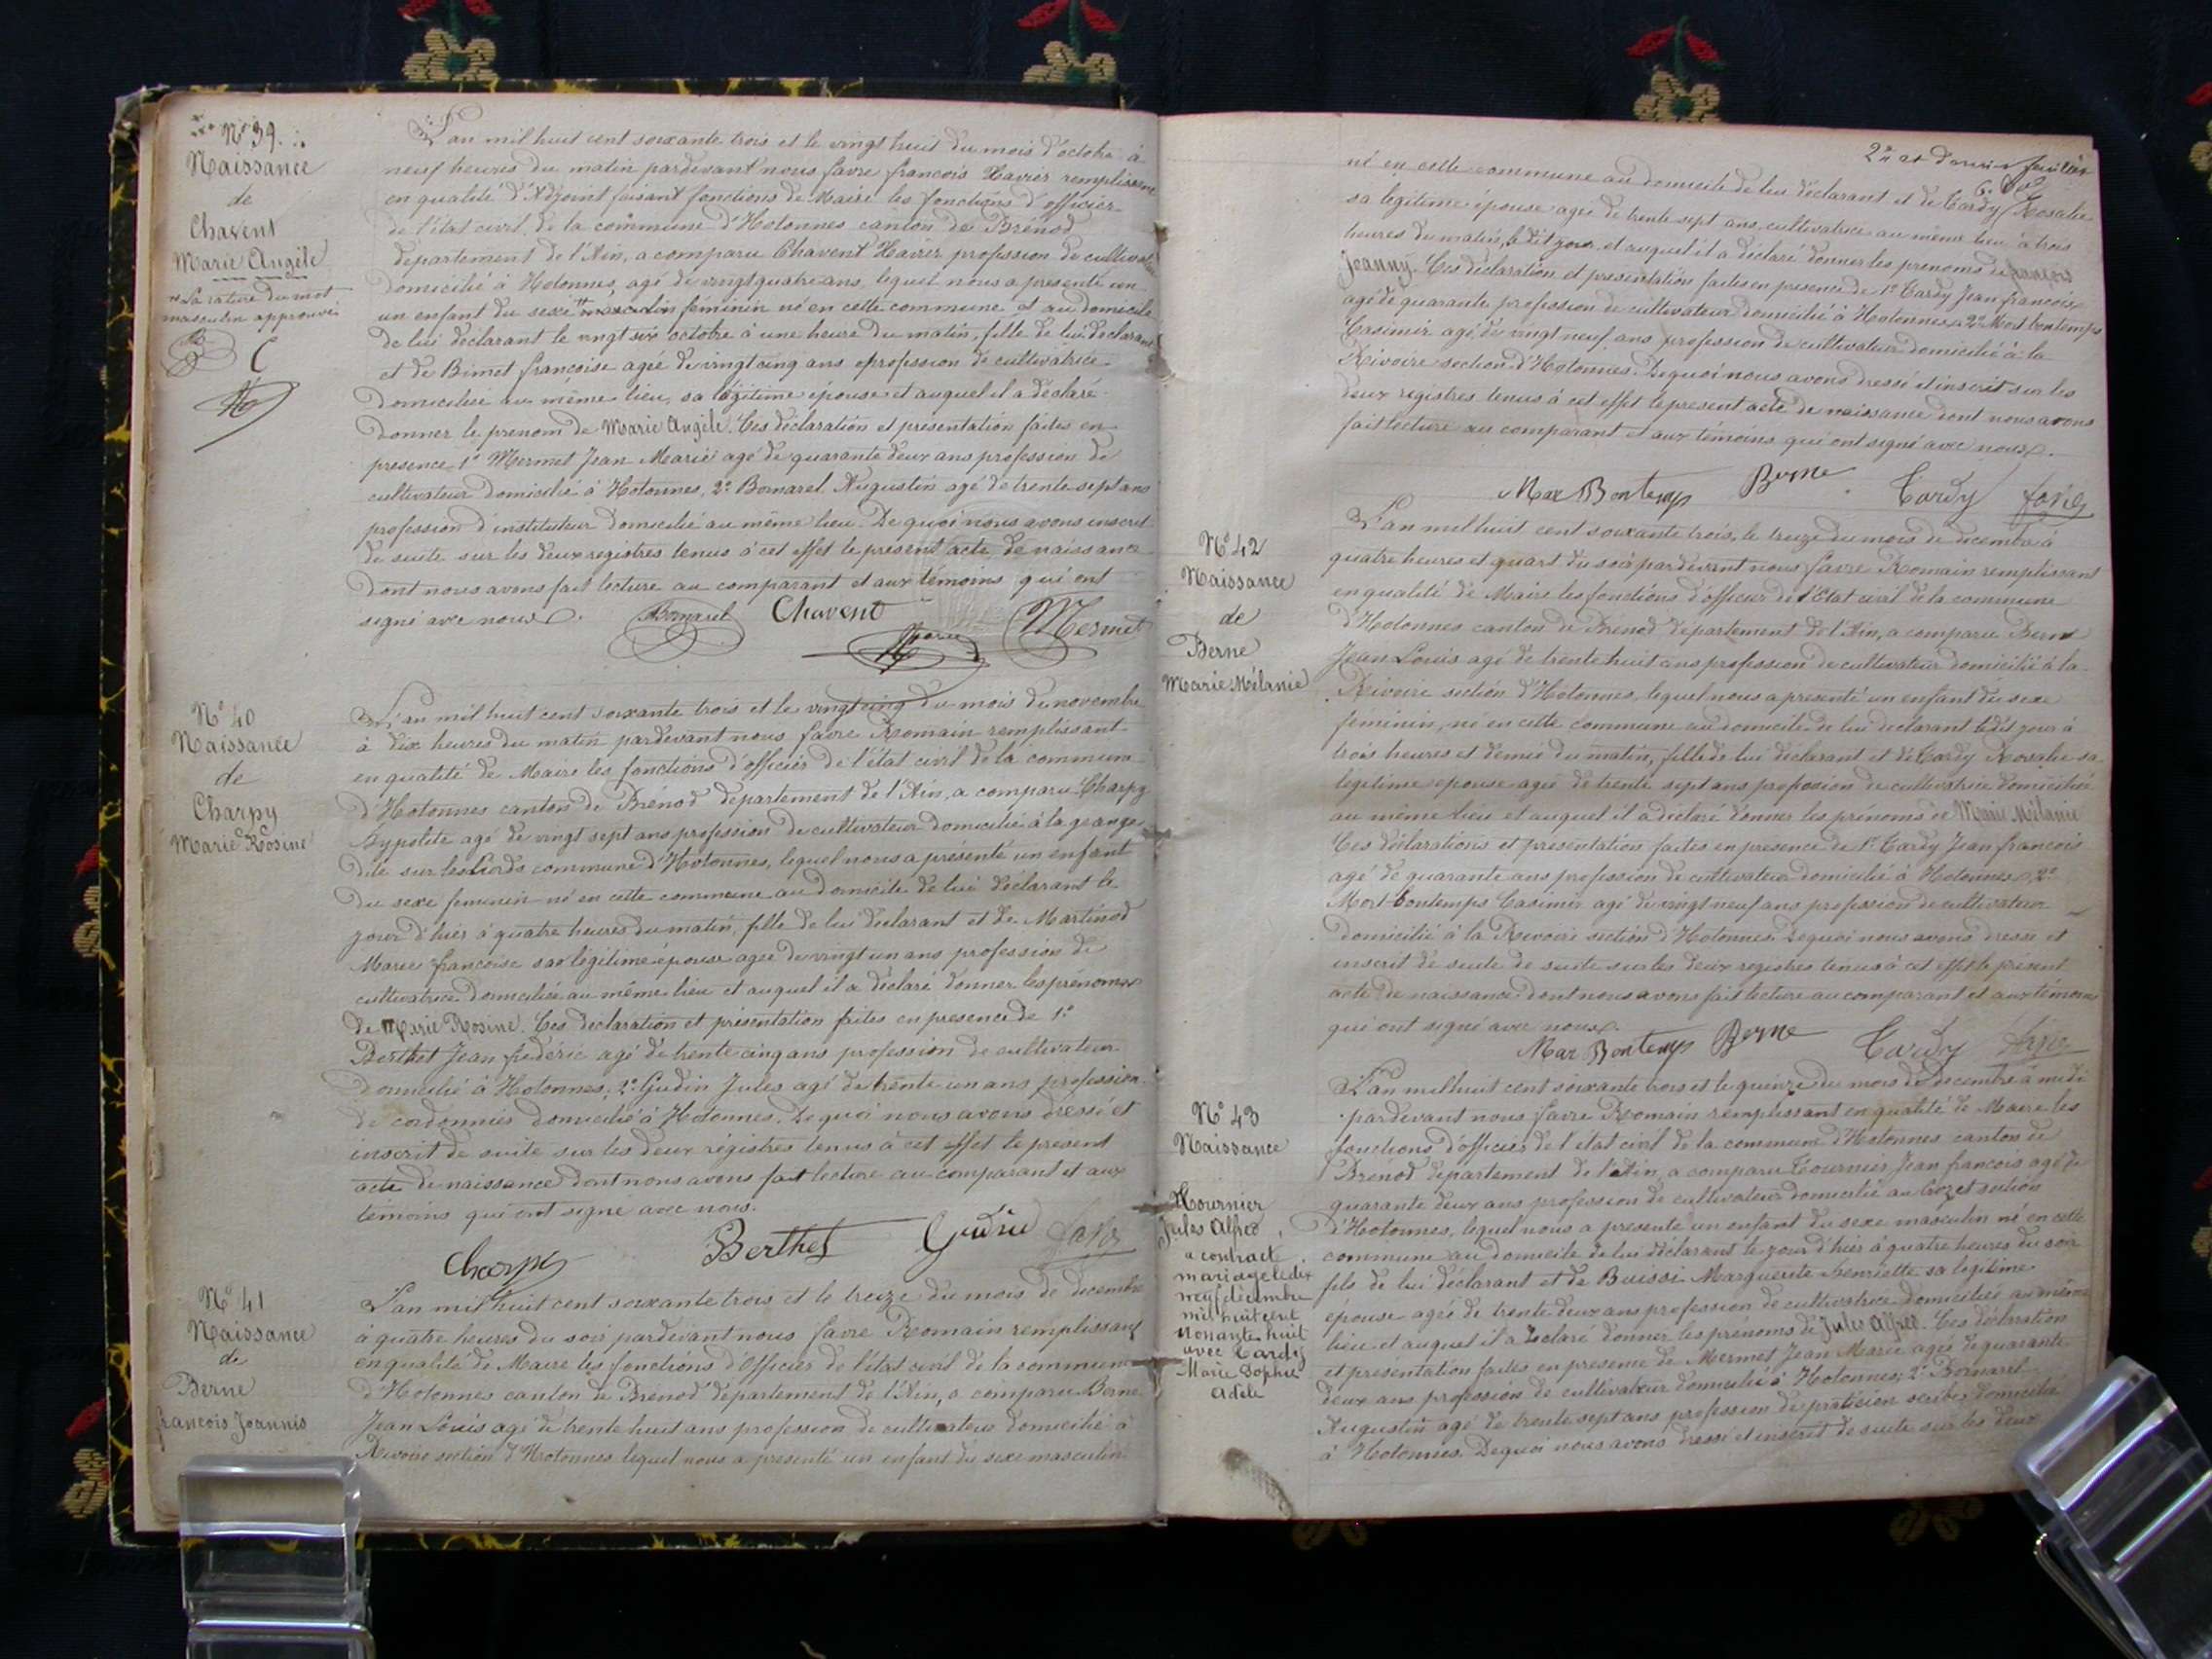 N° 39.
Naissance
de
Chavent
Marie Angèle
La rature du mot
masculin approuvée
L'an mil huit cent soixante trois et le vingt huit du mois d'octobre à
neuf heures du matin pardevant nous favre francois Xavier remplissant
en qualité d'Adjoint faisant fonctions de Maire les fonctions d'officier
de l'état civil de la commune d'Hotonnes canton de Brénod
département de l'Ain, a comparu Chavent Xavier profession de cultivateur
domicilié à Hotonnes, agé de vingt quatre ans, lequel nous a presenté un
un enfant du sexe masculin féminin né en cette commune et au domicile
de lui déclarant le vingt six octobre à une heure du matin, fille de lui declarant
et de Bimet francoise agée de vingt cinq ans profession de cultivatrice
domiciliée au même lieu, sa légitime épouse et auquel il a déclaré
donner le prenom de Marie Angèle. Ces déclaration et présentation faites en
presence 1° Mermet Jean Marie agé de quarante deux ans profession de
cultivateur domicilié à Hotonnes, 2° Bornarel Augustin agé de trente sept ans
profession d'instituteur domicilié au même lieu. De quoi nous avons inscrit
de suite sur les deux registres tenus à cet effet le présent acte de naissance
dont nous avons fait lecture au comparant et aux témoins qui ont
signé avec nous.
Bornarel Chavent Mermet
N° 40
Naissance
de
Charpy
Marie Rosine
L'an mil huit cent soixante trois et le vingt cinq du mois de novembre
à dix heures du matin pardevant nous favre Romain remplissant
en qualité de Maire les fonctions d'officier de l'état civil de la commune
d'Hotonnes canton de Brénod département de l'Ain, a comparu Charpy
hypolite agé de vingt sept ans profession de cultivateur domicilié à la grange
dite sur les commune d'Hotonnes, lequel nous a présenté un enfant
du sexe feminin né en cette commune au domicile de lui déclarant le
jour d'hier à quatre heures du matin, fille de lui declarant et de Martinod
Marie francoise sa légitime épouse agée de vingt un ans profession de
cultivatrice domiciliée au même lieu et auquel il a déclaré donner les prénoms
de Marie Rosine. Ces declaration et présentation faites en presence de 1°
Berthet Jean frédéric agé de trente cinq ans profession de cultivateur
domicilié à Hotonnes; 2° Gudin Jules agé de trente un ans profession
de cordonnier domicilié à Hotonnes. De quoi nous avons dressé et
inscrit de suite sur les deux régistres tenus à cet effet le présent
acte de naissance dont nous avons fait lecture au comparant et aux
témoins qui ont signé avec nous.
Charpy Berthet Gudin
N° 41
Naissance
de
Berne
francois Joannis
L'an mil huit cent soixante trois et le treize du mois de decembre
à quatre heures du soir pardevant nous favre Romain remplissant
en qualité de Maire les fonctions d'Officier de l'état civil de la commune
d'Hotonnes canton de Brenod département de l'Ain, a comparu Berne
Jean Louis agé de trente huit ans profession de cultivateur domicilié à
Rivoire section d'Hotonnes lequel nous a presenté un enfant du sexe masculin
2e et dernier feuillet
né en cette commune au domicile de lui déclarant et de Tardy Rosalie
sa légitime épouse agée de trente sept ans, cultivatrice au même lieu à trois
heures du matin, ledit jour et auquel il a déclaré donner les prenoms de francois
Joanny. Ces déclaration et présentation faites en presence de 1° Tardy Jean francois
agé de quarante profession de cultivateur domicilié à Hotonnes, 2° Mort bontemps
Casimir agé de vingt neuf ans profession de cultivateur domicilié à la
Rivoire section d'Hotonnes. De quoi nous avons dressé et inscrit sur les
deux registres tenus à cet effet le present acte de naissance dont nous avons
fait lecture au comparant et aux témoins qui ont signé avec nous.
Mor Bontemps Berne Tardy
N° 42
Naissance
de
Berne
Marie Mélanie
L'an mil huit cent soixante trois, le treize du mois de decembre à
quatre heures et quart du soir pardevant nous favre Romain remplissant
en qualité de Maire les fonctions d'officier de l'Etat civil de la commune
d'Hotonnes canton de Brenod département de l'Ain, a comparu Berne
Jean Louis agé de trente huit ans profession de cultivateur domicilié à la
Rivoire section d'Hotonnes, lequel nous a presenté un enfant du sexe
feminin, né en cette commune au domicile de lui declarant ledit jour à
trois heures et demie du matin, fille de lui déclarant et de Tardy Rosalie sa
légitime epouse agée de trente sept ans profession de cultivatrice domiciliée
au même lieu et auquel il a déclaré donner les prénoms de Marie Mélanie
Ces déclarations et présentation faites en presence de 1° Tardy Jean francois
agé de quarante ans profession de cultivateur domicilié à Hotonnes, 2°
Mort bontemps Casimir agé de vingt neuf ans profession de cultivateur
domicilié à la Rivoire section d'Hotonnes. De quoi nous avons dressé et
inscrit de suite de suite sur les deux registres tenus à cet effet le présent
acte de naissance dont nous avons fait lecture au comparant et aux témoins
qui ont signé avec nous.
Mor Bontemps Berne Tardy
N° 43
Naissance
Tournier
Jules Alfred
a contracté
mariage le dix
neuf décembre
mil huit cent
nonante huit
avec Tardy
Marie Sophie
Adèle
L'an mil huit cent soixante trois et le quinze du mois de decembre à midi
pardevant nous favre Romain remplissant en qualité de Maire les
fonctions d'officier de l'état civil de la commune d'Hotonnes canton de
Brénod département de l'Ain, a comparu Tournier Jean francois agé de
quarante deux ans profession de cultivateur domicilié au Crozet section
d'Hotonnes, lequel nous a presenté un enfant du sexe masculin né en cette
commune au domicile de lui déclarant le jour d'hier à quatre heures du soir
fils de lui déclarant et de Buissi Marguerite henriette sa légitime
épouse agée de trente deux ans profession de cultivatrice domiciliée au même
lieu et auquel il a declaré donner les prénoms de Jules Alfred. Ces déclaration
et présentation faites en presence de Mermet Jean Marie agé de quarante
deux ans profession de cultivateur domicilié à Hotonnes; 2° Bornarel
Augustin agé de trente sept ans profession de praticien domicilié
à Hotonnes. De quoi nous avons dressé et inscrit de suite sur les deux